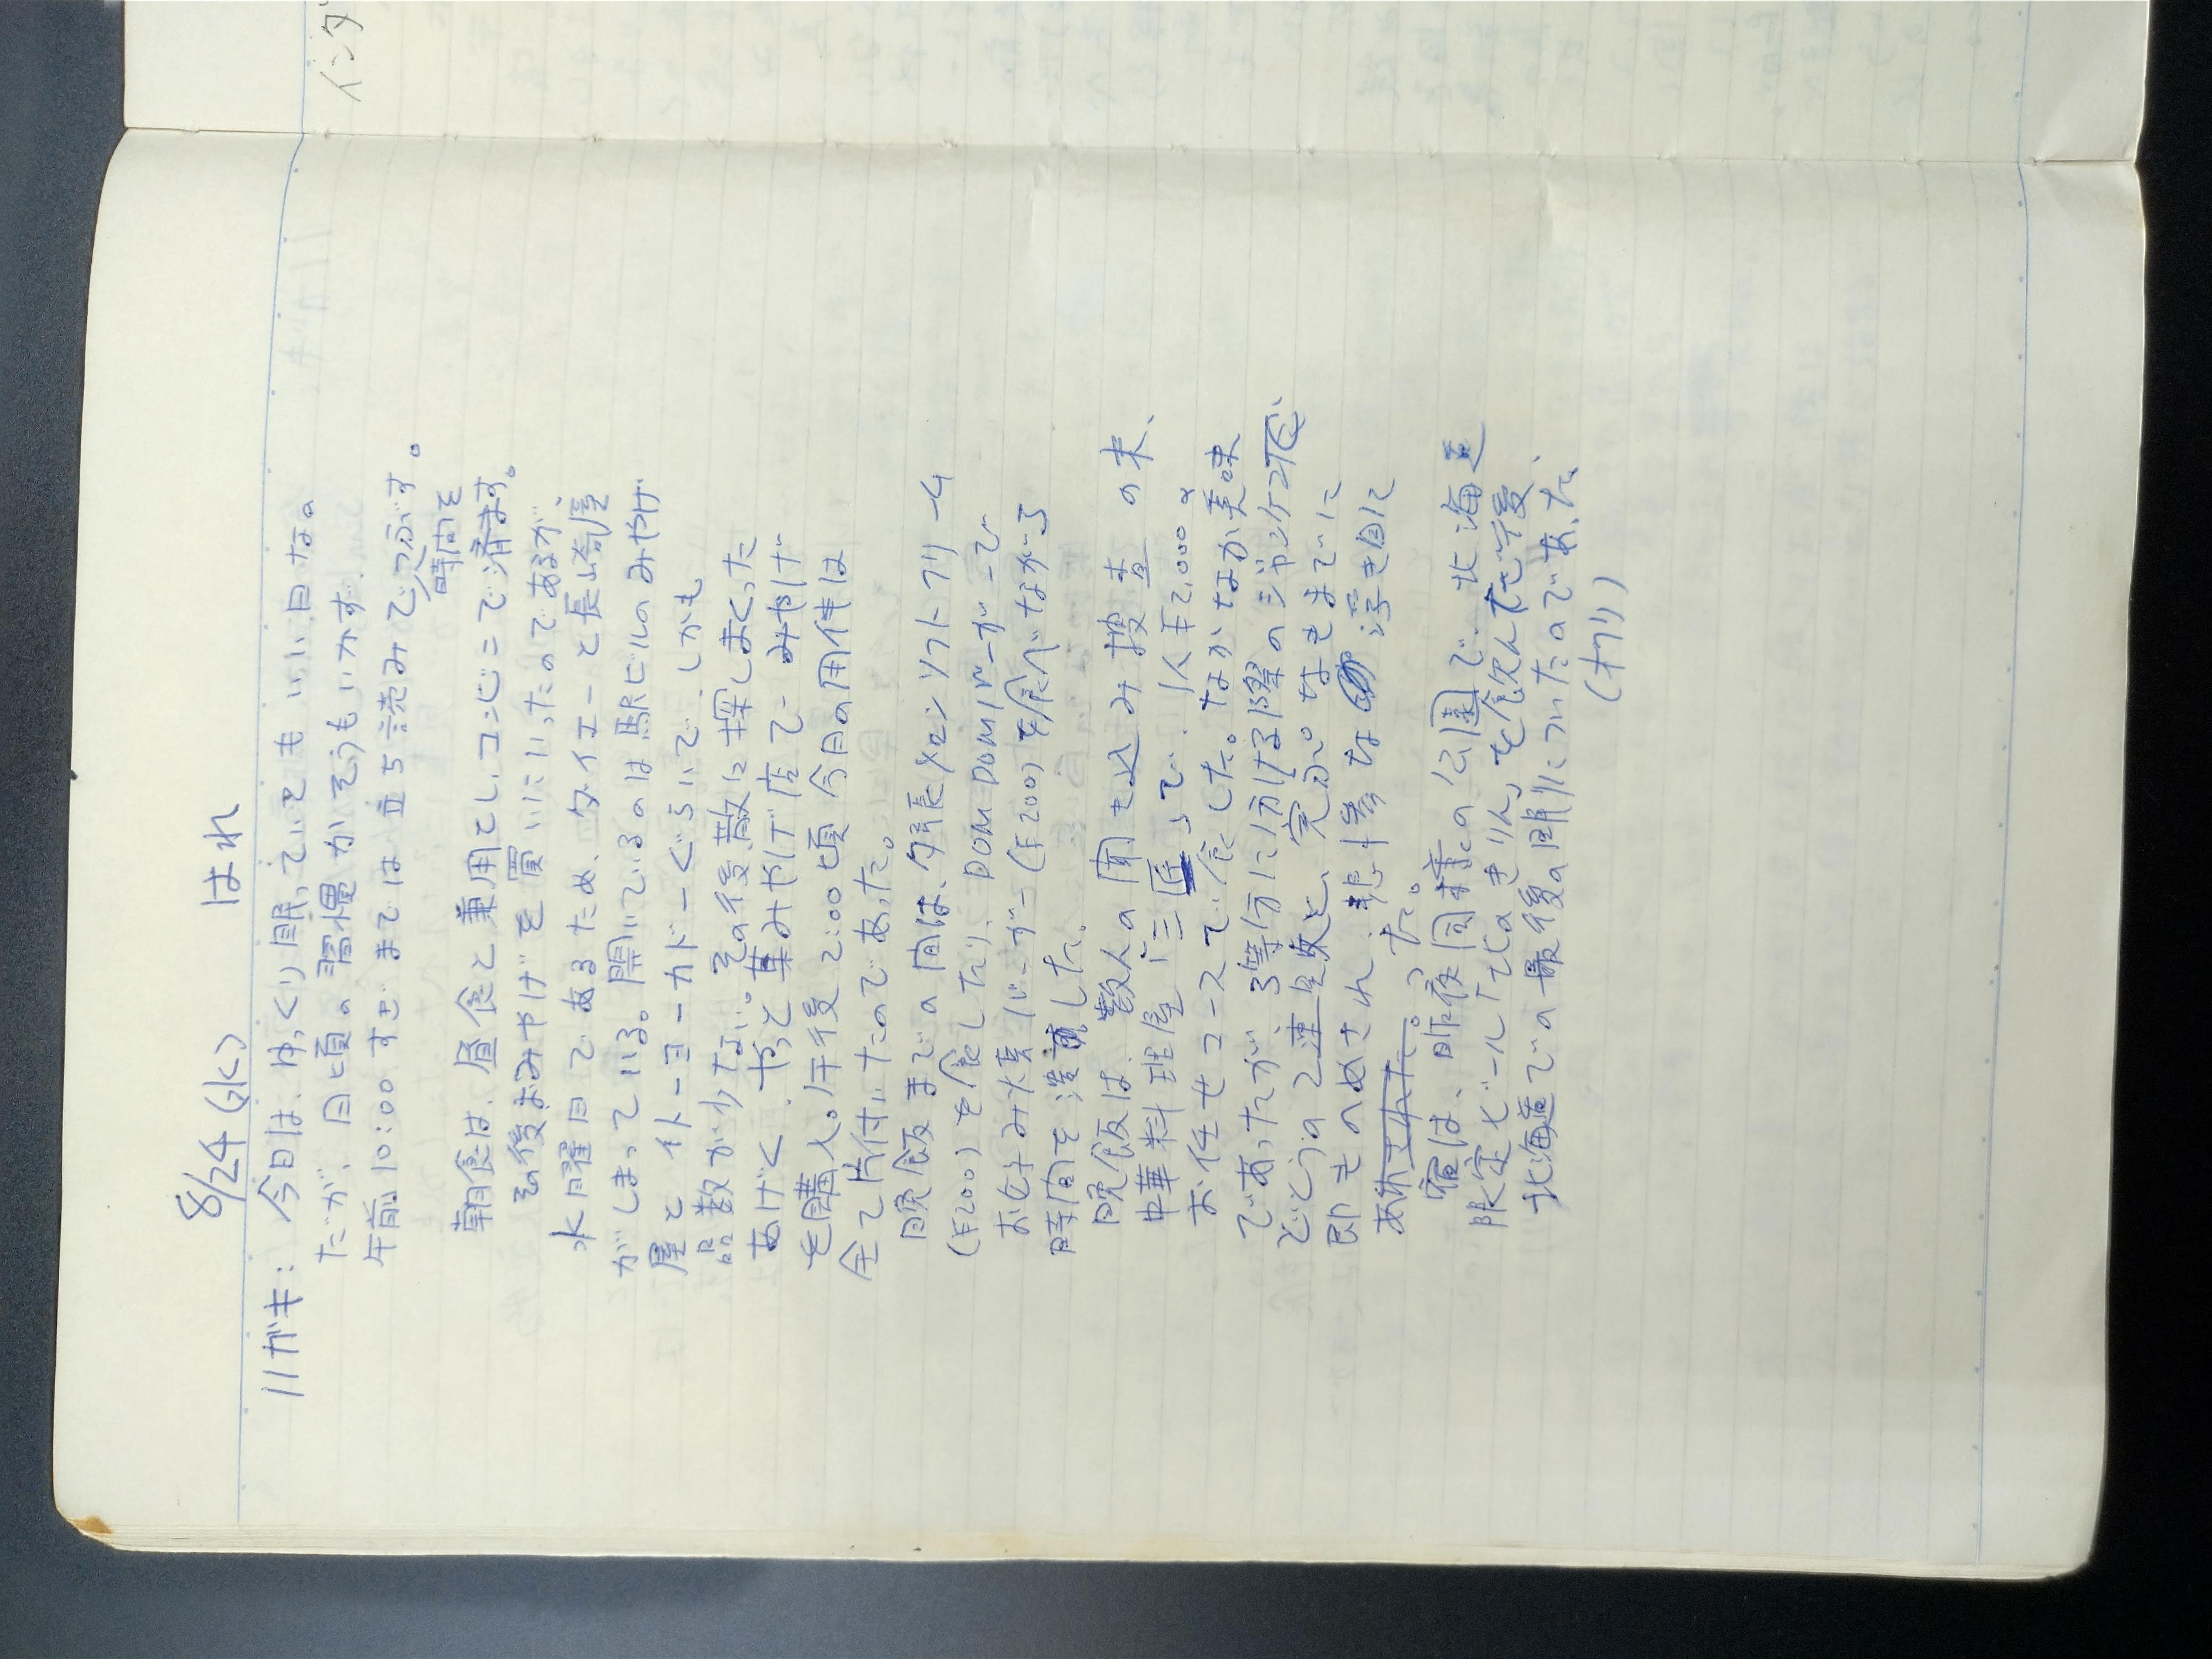 8/24(水) はれ
ハガキ: 今日は、ゆっくり眠っていてもいい日なの
だが、日頃の習慣がそうもいかず
午前10:00すぎまでは立ち読みでつぶす。
時間を
朝食は、昼食と兼用とし、コンビニで済ます。
その後おみやげを買いにいったのであるが、
水曜日であるため、ダイエーと長崎屋
がしまっている。開いているのは駅ビルのみやげ
屋とイトーヨーカドーぐらいで、しかも
品数が少ない。その後散に探しまくった
あげく、やっと菓みやげ店で、みやげ
を購入。午後2:00頃今日の用件は
全て片付いたのであった。
晩飯までの間は、夕張メロンソフトクリーム
(¥200)を食したり、DOMDOMバーガーで
お好み焼バーガー(¥200)を食べながら
時間を浪費した。
晩飯は、数人の聞き込み捜査の末、
中華料理屋「三匠」で、1人¥2,000の
お任せコースで食した。なかなか美味
であったが、3等分に分ける際のジャンケンで、
どとうの2連敗と、完ぷなきまでに
叩きのめされ、悲惨な浮き目に
あった。
宿は、昨夜同様の公園で、北海道
限定ビール「北のきりん」を飲んだ後、
北海道での最後の眠りについたのであった。
(オワリ)
インダ